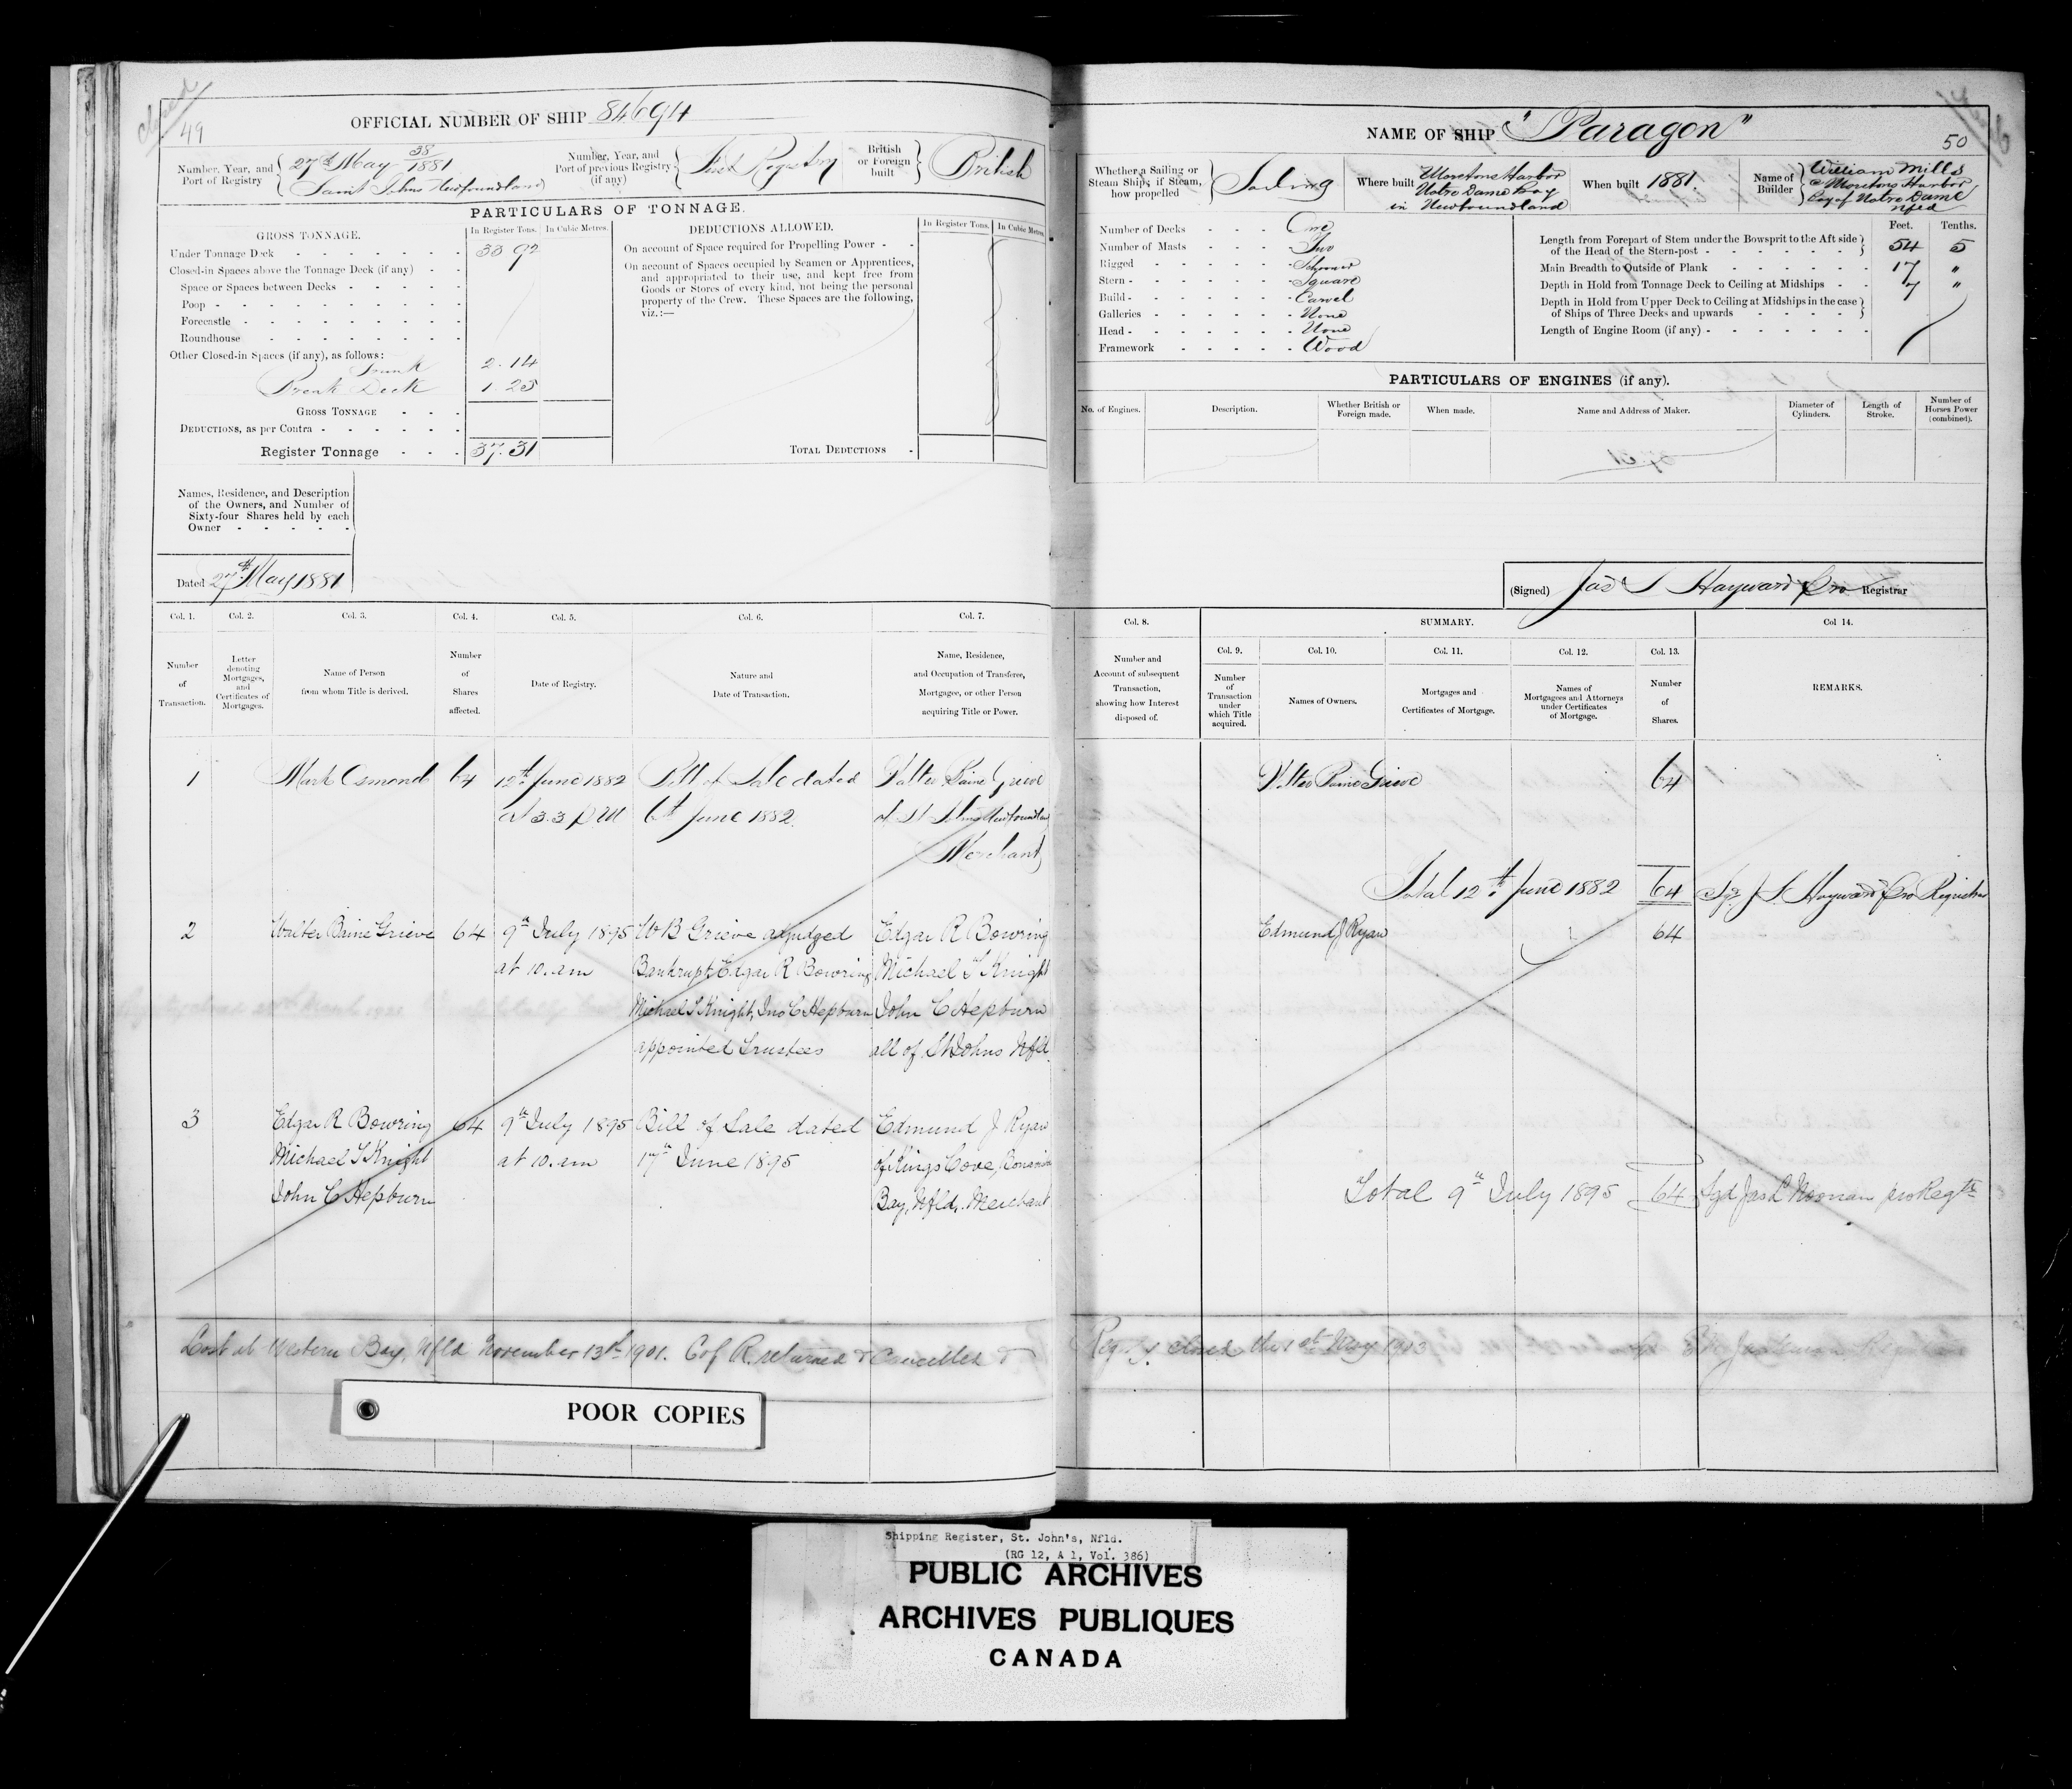 closed
49
OFFICIAL NUMBER OF SHIP 84694
Number, Year, and Port of Registry { 27th May 38/1881
Saint Johns Newfoundland
Number, Year, and Port of previous Registry (if any) { First Registry
British or Foreign built } British
PARTICULARS OF TONNAGE.
GROSS TONNAGE.
In Register Tons. In Cubic Metres.
DEDUCTIONS ALLOWED.
In Register Tons. In Cubic Metres
Under Tonnage Deck 33 92
Closed-in Spaces above the Tonnage Deck (if any)
Space or Spaces between Decks
Poop
Forecastle
Roundhouse
Other Closed-in Spaces (if any), as follows:
Trunk 2.14
Break Deck 1.25
GROSS TONNAGE
DEDUCTIONS, as per Contra
Register Tonnage 37.31
On account of Space required for Propelling Power
On account of Spaces occupied by Seamen or Apprentices,
and appropriated to their use, and kept free from
Goods or Stores of every kind, not being the personal
property of the Crew. These Spaces are the following,
viz.:—
TOTAL DEDUCTIONS
Names, Residence, and Description
of the Owners, and Number of
Sixty-four Shares held by each
Owner
Dated 27th May 1881
Col. 1. Col. 2. Col. 3. Col. 4. Col. 5. Col. 6. Col. 7.
Number of Transaction.
Letter denoting Mortgages, and Certificates of Mortgages.
Name of Person from whom Title is derived.
Number of Shares affected.
Date of Registry.
Nature and Date of Transaction.
Name, Residence, and Occupation of Transferee, Mortgagee, or other Person acquiring Title or Power.
1 Mark Osmond 64 12th June 1882 Bill of Sale dated Walter Baine Grieve
at 3.3 P.M 6th June 1882. of St Johns Newfoundland
Merchant
2 Walter Baine Grieve 64 9th July 1895 W B Grieve adjudged Edgar R Bowring
at 10. am Bankrupt, Edgar R Bowring Michael T Knight
Michael T Knight, Jno C Hepburn John C Hepburn
appointed Trustees all of St Johns Nfld.
3 Edgar R Bowring 64 9th July 1895 Bill of Sale dated Edmund J Ryan
Michael T Knight at 10. am 17th June 1895 of Kings Cove, Bonavista
John C Hepburn Bay, Nfld, Merchant
Lost at Western Bay, Nfld November 13th 1901. C of R. returned & Cancelled &
POOR COPIES
NAME OF SHIP "Paragon"
50
Whether a Sailing or Steam Ship; if Steam, how propelled } Sailing
Where built Moretons Harbor
Notre Dame Bay
in Newfoundland
When built 1881.
Name of Builder { William Mills
Moretons Harbor,
Bay of Notre Dame
Nfld
Number of Decks One
Number of Masts Two
Rigged Schooner
Stern Square
Build Carvel
Galleries None
Head None
Framework Wood
Feet. Tenths.
Length from Forepart of Stem under the Bowsprit to the Aft side
of the Head of the Stern-post 54 5
Main Breadth to Outside of Plank 17 "
Depth in Hold from Tonnage Deck to Ceiling at Midships 7 "
Depth in Hold from Upper Deck to Ceiling at Midships in the case
of Ships of Three Decks and upwards
Length of Engine Room (if any)
PARTICULARS OF ENGINES (if any).
No. of Engines. Description. Whether British or Foreign made. When made. Name and Address of Maker. Diameter of Cylinders. Length of Stroke. Number of Horses Power (combined).
(Signed) Jas S Hayward Pro Registrar
Col. 8. SUMMARY. Col 14.
Col. 9. Col. 10. Col. 11. Col. 12. Col. 13.
Number and Account of subsequent Transaction, showing how Interest disposed of.
Number of Transaction under which Title acquired.
Names of Owners.
Mortgages and Certificates of Mortgage.
Names of Mortgagees and Attorneys under Certificates of Mortgage.
Number of Shares.
REMARKS.
Walter Baine Grieve 64
Total 12th June 1882 64 Sgd J S Hayward Pro Registrar
Edmund J Ryan 64
Total 9th July 1895 64 Sgd Jas L Noonan pro Regtr
Regy closed this 1st May 1903
Shipping Register, St. John's, Nfld.
(RG 12, A 1, Vol. 386)
PUBLIC ARCHIVES
ARCHIVES PUBLIQUES
CANADA